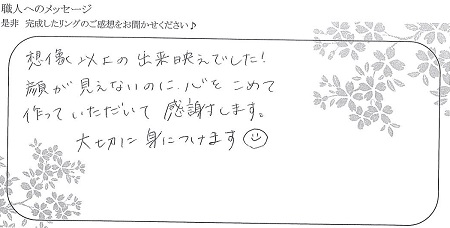 職人へのメッセージ
是非 完成したリングのご感想をお聞かせください♪
想像以上の出来映えでした!
顔が見えないのに、心をこめて
作っていただいて感謝します。
大切に身につけます☺